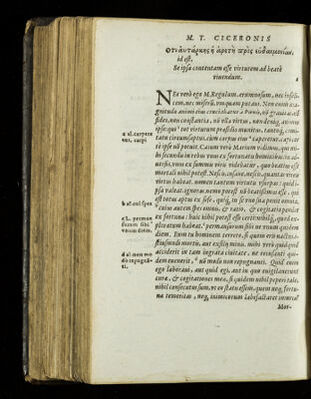 M. T. CICERONIS
Ὅτι αὐτάρκης ἡ ἀρετὴ πρὸς εὐδαιμονίαν,
id est,
Se ipsa contentam esse virtutem ad beate
viuendum.
NEc verò ego M. Regulum ærumnosum, nec infeli-
cem, nec miserũ vmquam putaui. Non enim ma-
gnitudo animi eius cruciabatur a Pœnis, nõ grauitas, nõ
fides, non constantia, nõ vlla virtus, non deniq; animus
ipse: qui tot virtutum præsidio munitus, tantoq; comi-
tatu circunseptus, cum corpus eius caperetur, capi cer-
te ipse nõ potuit. Caium verò Marium vidimus, qui mi-
hi secundis in rebus vnus ex fortunatis hominibus, in ad-
uersis, vnus ex summis viris videbatur, quo beatius esse
mortali nihil potest. Nescis, insane, nescis, quantas vires
virtus habeat. nomen tantum virtutis vsurpas: quid i-
psa valeat, ignoras. nemo potest nõ beatissimus esse, qui
est totus aptus ex sese, quiq; in se vno sua ponit omnia,
cuius autem spes omnis, & ratio, & cogitatio pendet
ex fortuna: huic nihil potest esse certi: nihilq; quod ex-
ploratum habeat, permansurum sibi ne vnum quidem
diem. Eum tu hominem terreto, si quem eris nactus,
istiusmodi mortis, aut exsilij minis. mihi verò quidquid
acciderit in tam ingrata ciuitate, ne recusanti qui-
dem euenerit, nõ modò non repugnanti. Quid enim
ego laboraui, aut quid egi, aut in quo euigilauerunt
curæ, & cogitationes meæ, si quidem nihil peperi tale,
nihil consecutus sum, vt eo statu essem, quem neq; fortu-
næ temeritas, neq; inimicorum labefactaret iniuria?
Mor-
a al. caperetur, capi
b al. cui spes